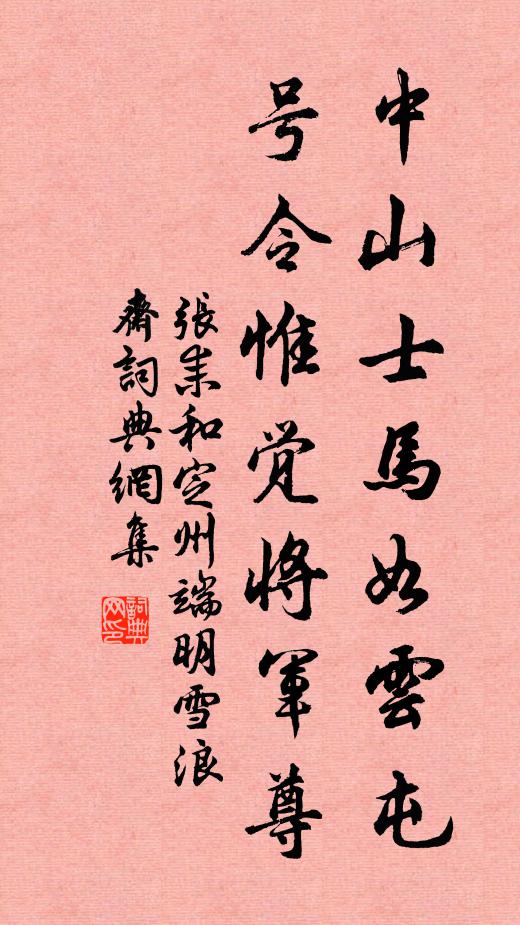 中山士馬如雲屯
号令惟觉將軍尊
張耒和定州端明雪浪
齋詞典網集
詞典網印